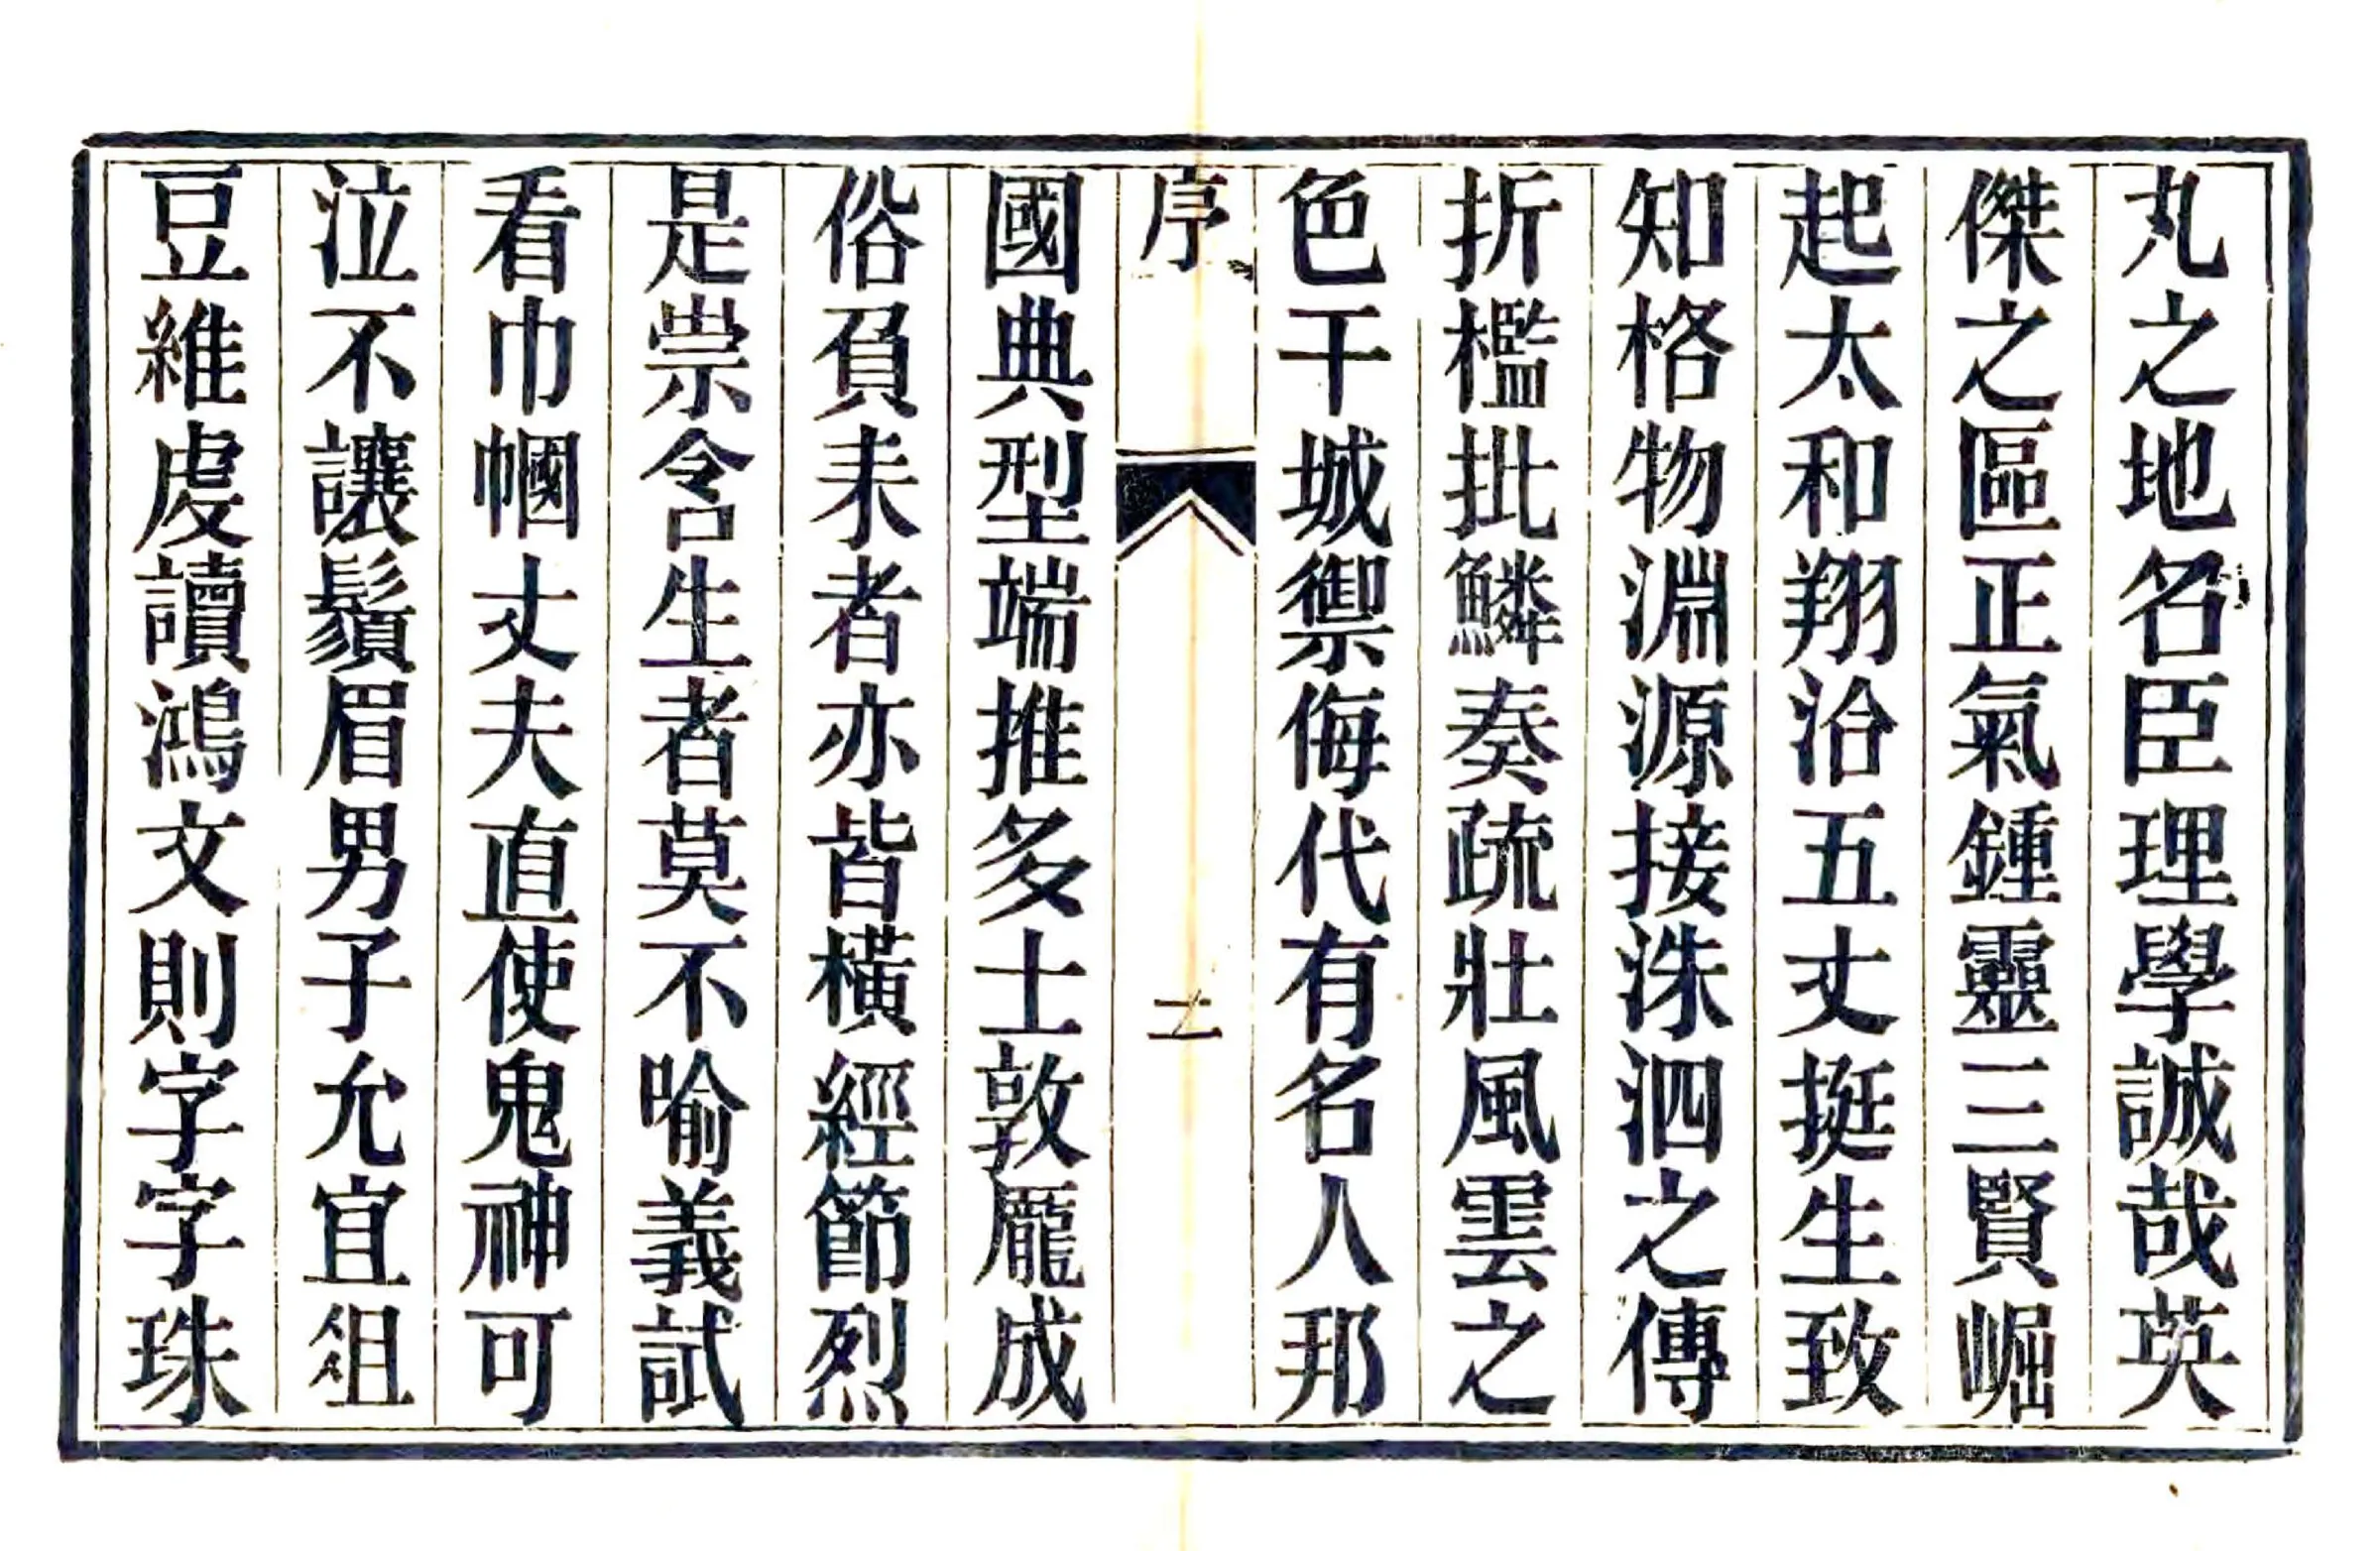 丸之地名臣理學誠哉英
傑之區正氣鍾靈三賢崛
起太和翔洽五丈挺生致
知格物淵源接洙泗之傳
折檻批鱗奏疏壯風雲之
色干城禦侮代有名人邦
序
國典型端推多士敦龐成
俗負耒者亦皆橫經節烈
是崇含生者莫不喻義試
看巾幗丈夫直使鬼神可
泣不讓鬚眉男子允宜俎
豆維虔讀鴻文則字字珠